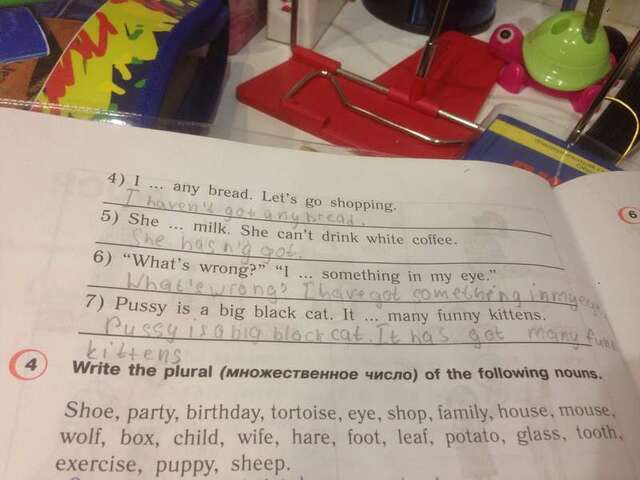 4) I ... any bread. Let's go shopping.
I haven't got any bread.
5) She ... milk. She can't drink white coffee.
She hasn'g got.
6) "What's wrong?" "I ... something in my eye."
What's wrong? I have got something in my eye
7) Pussy is a big black cat. It ... many funny kittens.
Pussy is a big black cat. It has got many funn
kittens
4 Write the plural (множественное число) of the following nouns.
Shoe, party, birthday, tortoise, eye, shop, family, house, mouse,
wolf, box, child, wife, hare, foot, leaf, potato, glass, tooth,
exercise, puppy, sheep.
6